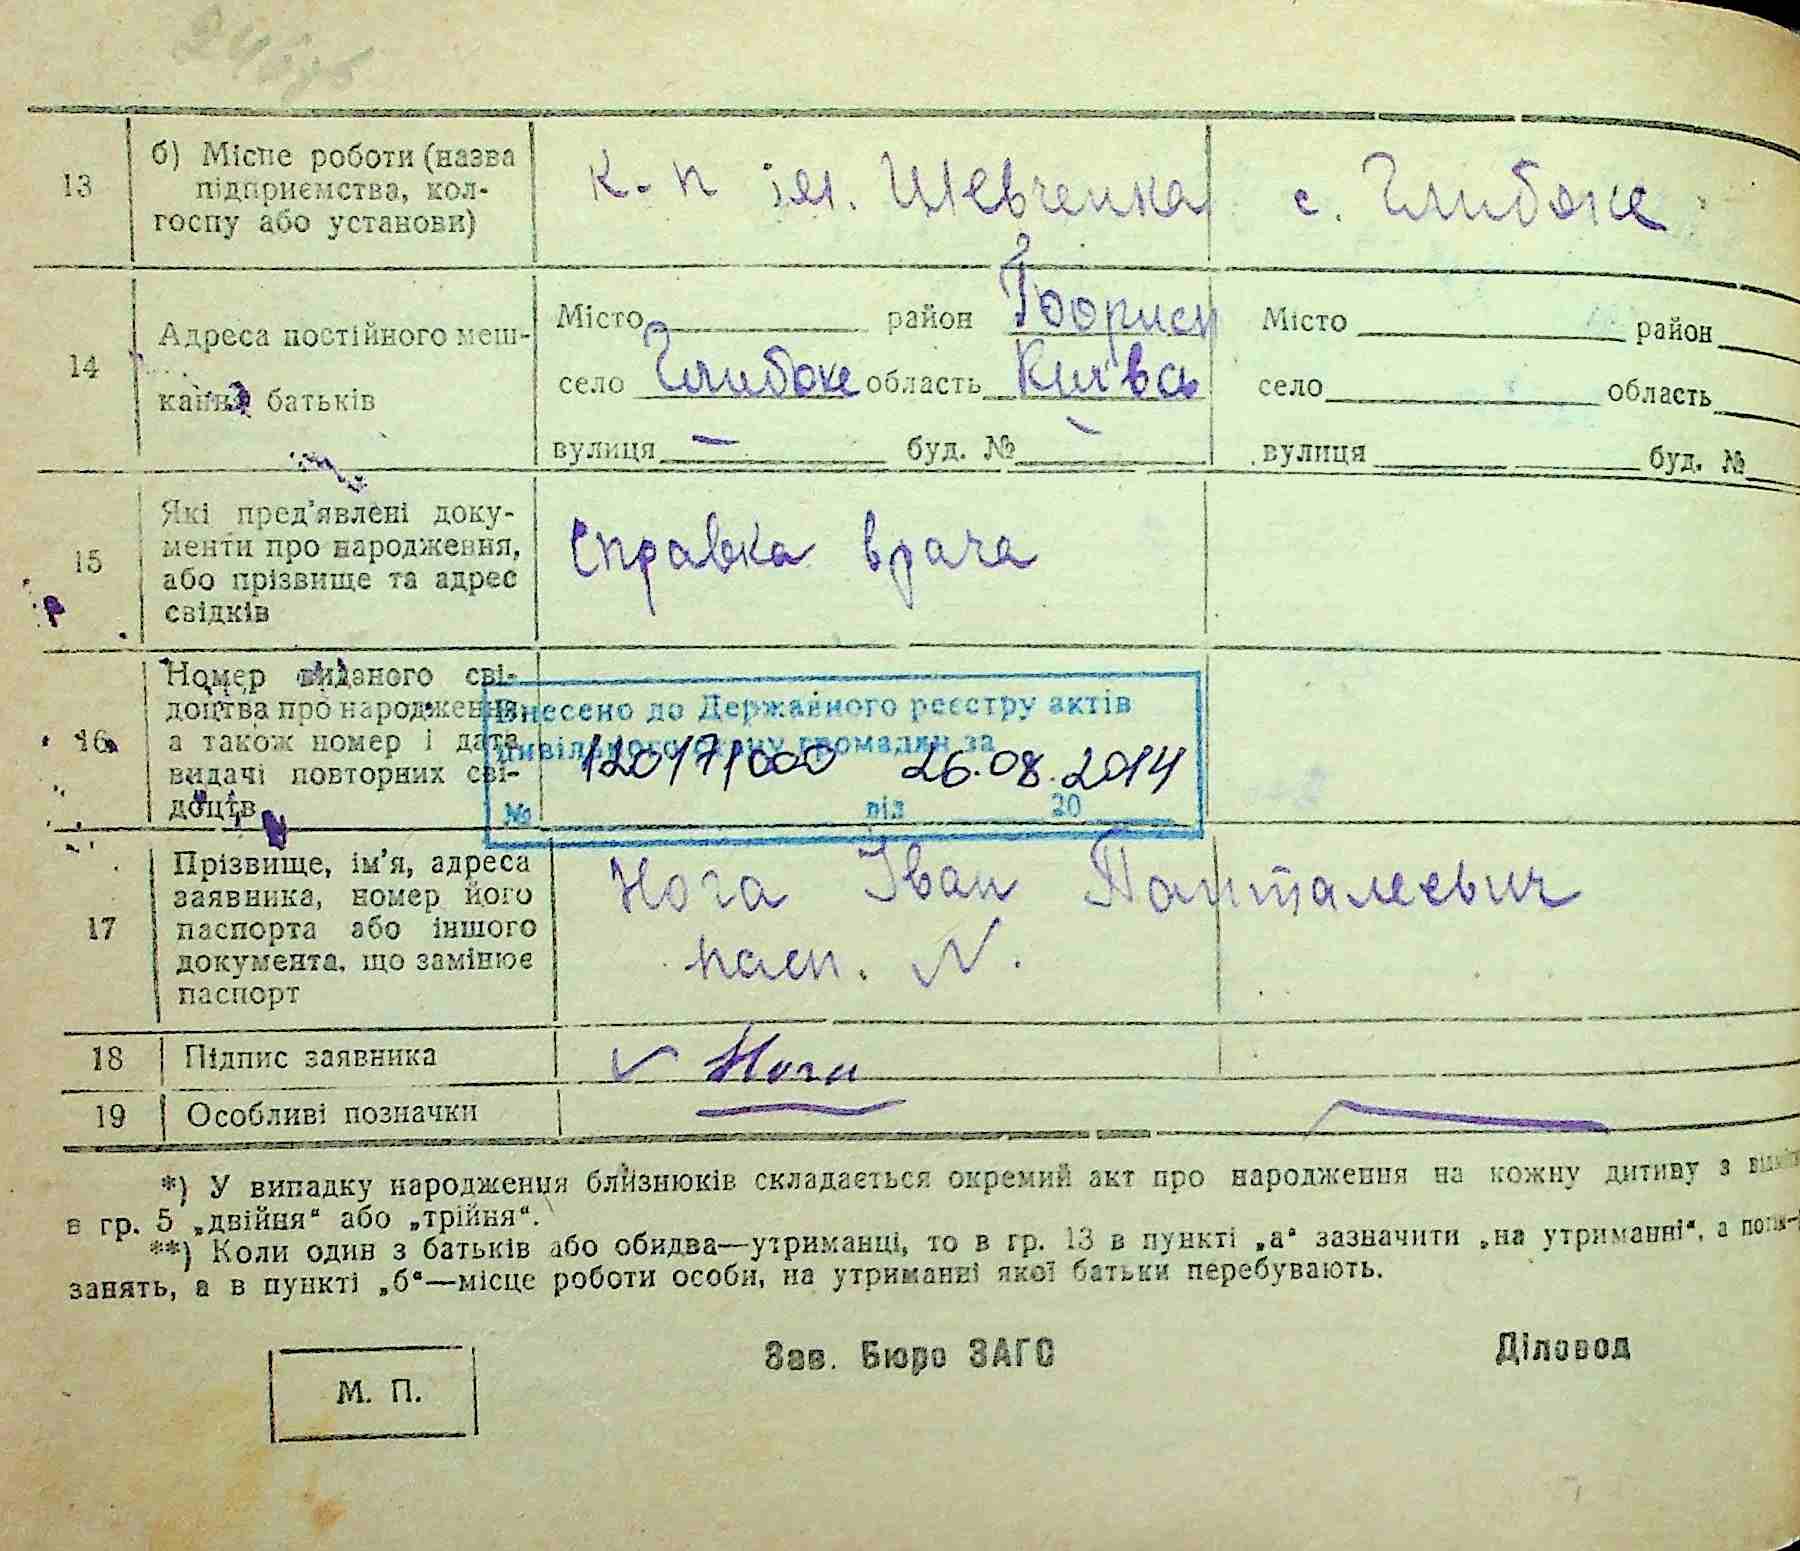 13
б) Місце роботи (назва
підприємства, кол-
госпу або установи)
к-п ім. Шевченка
с. Глибоке
14
Адреса постійного меш-
кання батьків
Місто район Борисп
село Глибоке область Київсь
вулиця — буд. № —
Місто район
село область
вулиця буд. №
15
Які пред'явлені доку-
менти про народження,
або прізвище та адрес
свідків
Справка врача
16
Номер виданого сві-
доцтва про народження
а також номер і дата
видачі повторних сві-
доцтв
Внесено до Державного реєстру актів
цивільного стану громадян за
120171000 26.08.2014
№ від 20
17
Прізвище, ім'я, адреса
заявника, номер його
паспорта або іншого
документа, що замінює
паспорт
Нога Іван Панталеєвич
пасп. N.
18
Підпис заявника
Нога
19
Особливі позначки
*) У випадку народження близнюків складається окремий акт про народження на кожну дитину з
в гр. 5 „двійня“ або „трійня“.
**) Коли один з батьків або обидва—утриманці, то в гр. 13 в пункті „а“ зазначити „на утриманні“, а
занять, а в пункті „б“—місце роботи особи, на утриманні якої батьки перебувають.
Зав. Бюро ЗАГС
Діловод
М. П.